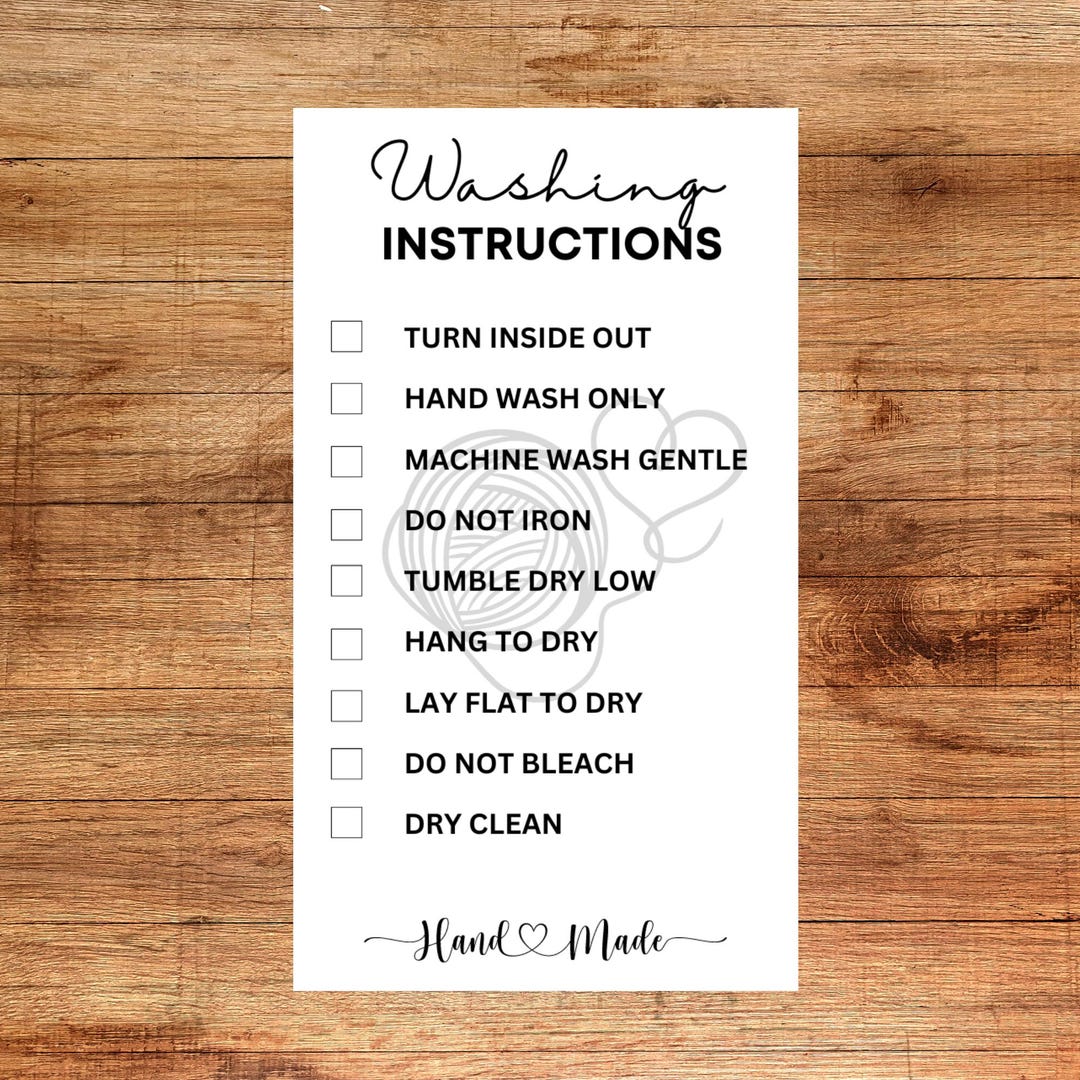 Washing
INSTRUCTIONS
TURN INSIDE OUT
HAND WASH ONLY
MACHINE WASH GENTLE
DO NOT IRON
TUMBLE DRY LOW
HANG TO DRY
LAY FLAT TO DRY
DO NOT BLEACH
DRY CLEAN
Hand Made